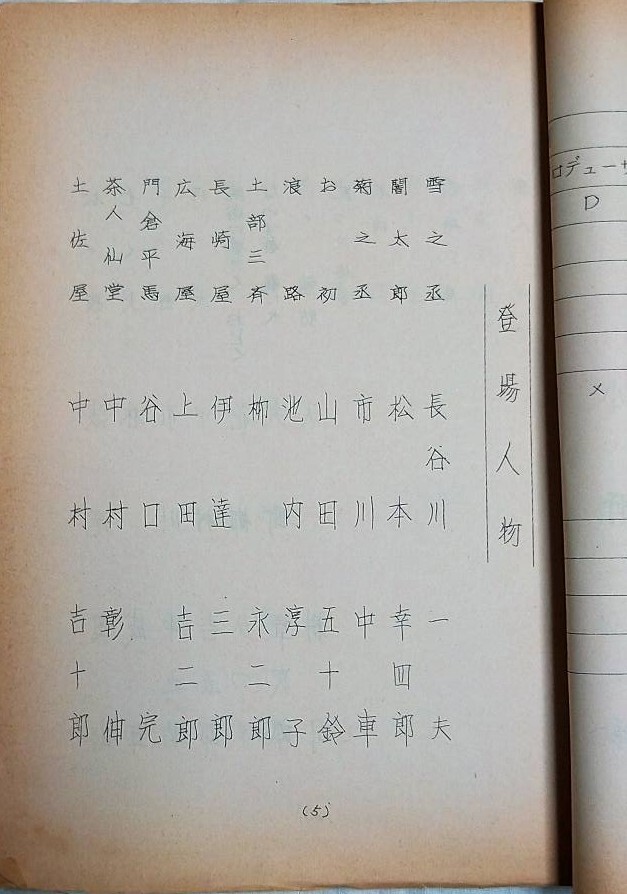 登場人物
雪之丞 長谷川一夫
闇太郎 松本幸四郎
菊之丞 市川中車
お初 山田五十鈴
浪路 池内淳子
土部三斉 柳永二郎
長崎屋 伊達三郎
広海屋 上田吉二郎
門倉平馬 谷口完
茶人仙堂 中村彰伸
土佐屋 中村吉十郎
(5)
ロデューサ
D
メ